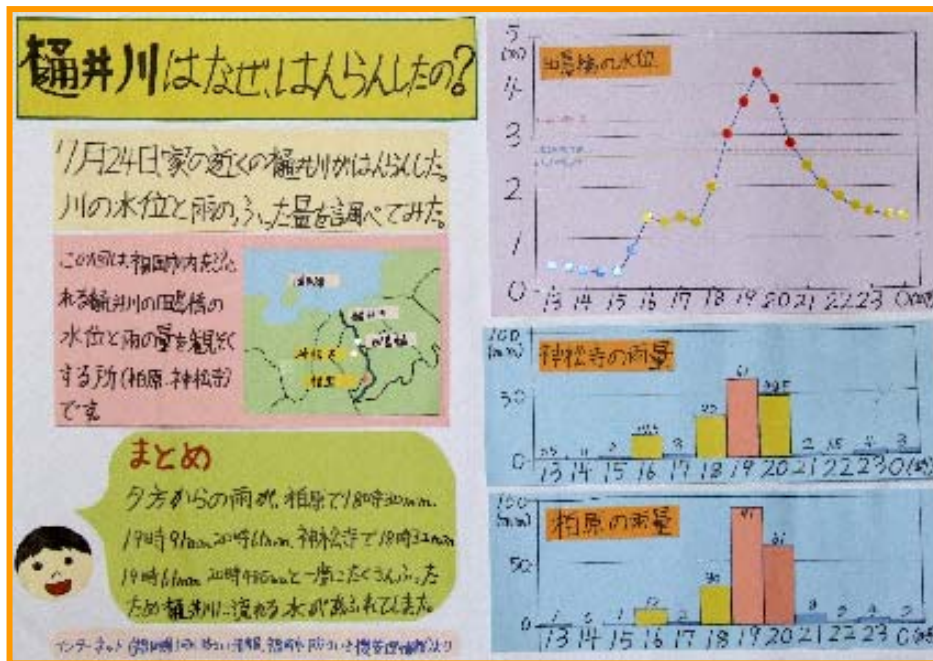 樋井川はなぜ、はんらんしたの?
7月24日家の近くの樋井川がはんらんした。
川の水位と雨のふった量を調べてみた。
この図は、福岡市内を
れる樋井川の田島橋の
水位と雨の量を観そく
する所(柏原、神松寺)
です。
樋井川
田島橋
神松寺
柏原
まとめ
夕方からの雨が、柏原で18時30mm、
19時91mm、20時61mm、神松寺で18時32mm
19時61mm、20時49.5mmと一度にたくさんふった
ため樋井川に流れる水があふれてしまった。
田島橋の水位
5
(m)
4
3
2
1
0
13 14 15 16 17 18 19 20 21 22 23 0(時)
神松寺の雨量
100
(mm)
50
0
61
49.5
13 14 15 16 17 18 19 20 21 22 23 0(時)
柏原の雨量
100
(mm)
50
0
30
91
61
13 14 15 16 17 18 19 20 21 22 23 0(時)